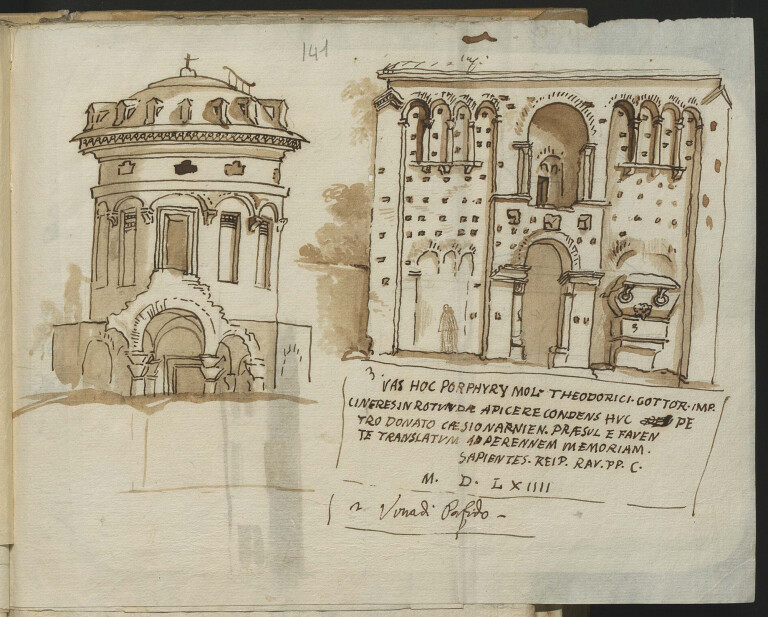 141
3
3.
VAS HOC PORPHYRY MOL: THEODORICI. GOTTOR. IMP.
CINERES IN ROTVNDÆ APICERE CONDENS HVC PE
TRO DONATO CÆSIO NARNIEN. PRÆSUL E FAVEN
TE TRANSLATVM AD PERENNEM MEMORIAM.
SAPIENTES. REIP. RAV. PP. C.
M. D. L X IIII